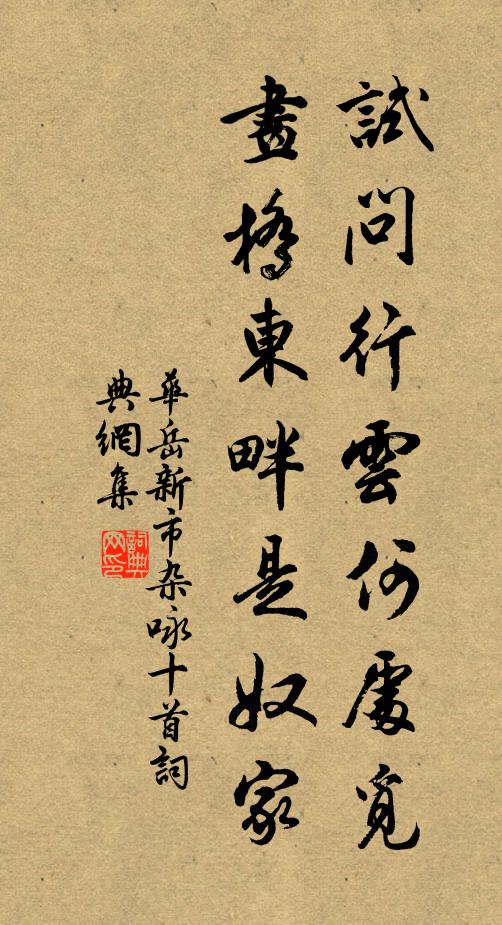 試問行雲何處覓
畫橋東畔是奴家
華岳新市杂咏十首詞
典網集
詞典网印